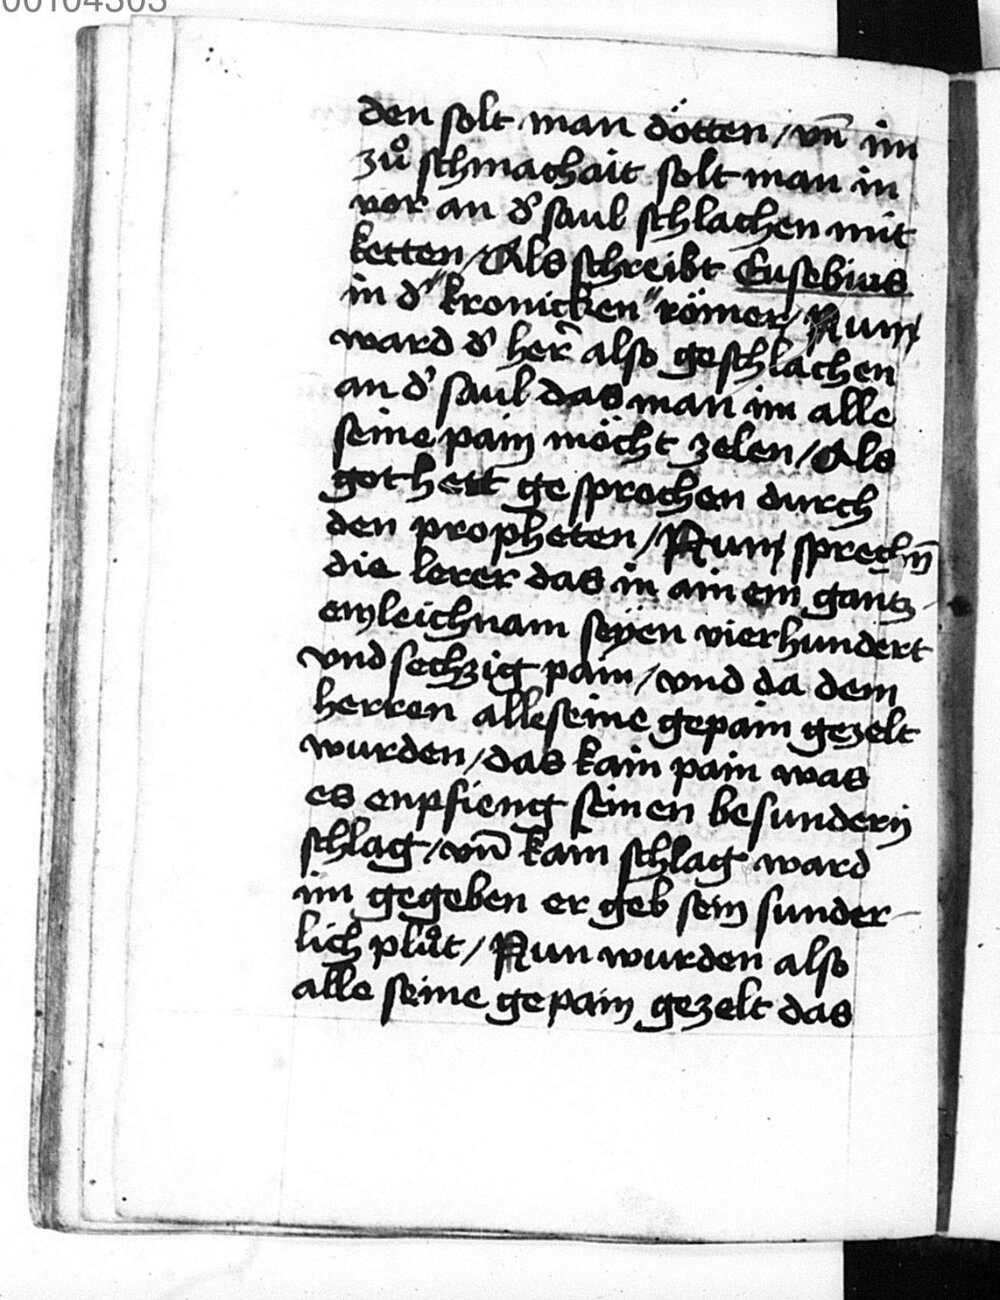 00104303
den solt man dötten / vn̄ im
zů schmachait solt man in
vor an d' saul schlachen mit
ketten / Als schreibt Eusebius
in d' "kronicken" römer / Nun
ward d' her̄ also geschlachen
an d' saul das man im alle
seine pain möcht zelen / Als
got hett gesprochen durch
den propheten / Nun sprechn̄
die lerer das in ainem gantz
em leichnam seÿen vierhundert
vnd sechzig pain / vnd da dem
herren alle seine gepain gezelt
wurden / das kain pain was
es enpfieng seinen besundern
schlag / vn̄ kain schlag ward
im gegeben er geb sein sunder-
lich plůt / Nun wurden also
alle seine gepain gezelt das